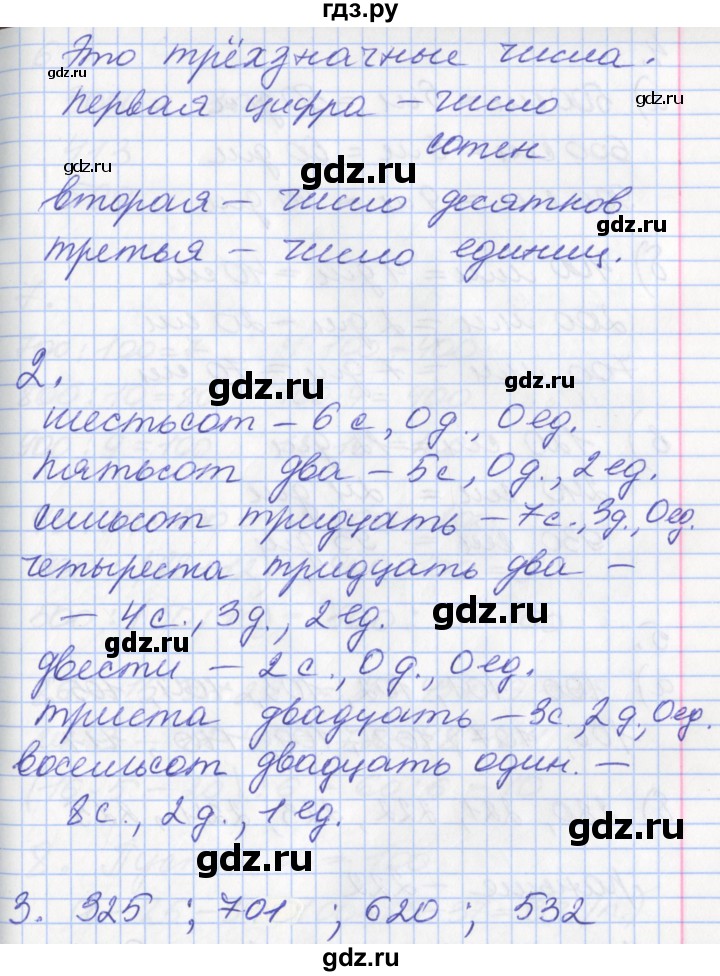 гдз.ру
Это трёхзначные числа.
первая цифра – число
сотен
вторая – число десятков
третья – число единиц.
2.
шестьсот – 6 с, 0 д., 0 ед.
пятьсот два – 5 с, 0 д., 2 ед.
семьсот тридцать – 7 с., 3 д, 0 ед.
четыреста тридцать два –
– 4 с., 3 д., 2 ед.
двести – 2 с., 0 д., 0 ед.
триста двадцать – 3 с, 2 д, 0 ед.
восемьсот двадцать один. –
8 с., 2 д., 1 ед.
3. 325 ; 701 ; 620 ; 532
gdz.ru
gdz.ru
gdz.ru
gdz.ru
gdz.ru
gdz.ru
gdz.ru
gdz.ru
gdz.ru
gdz.ru
gdz.ru
gdz.ru